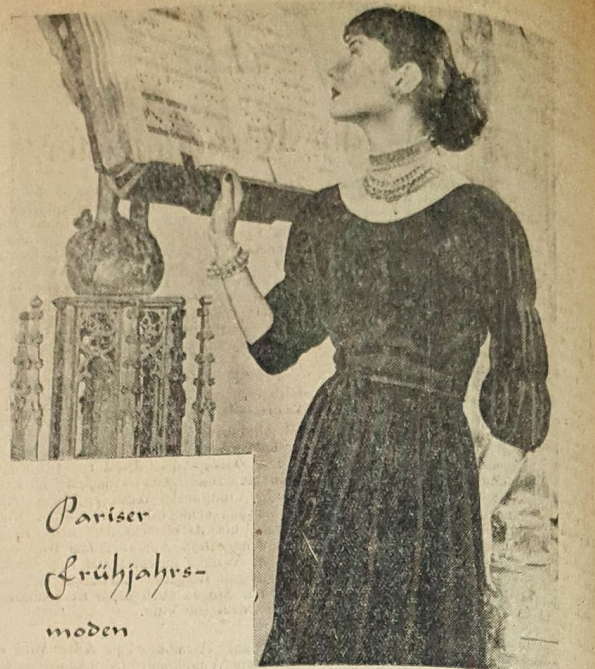 Pariser
Frühjahrs-
moden